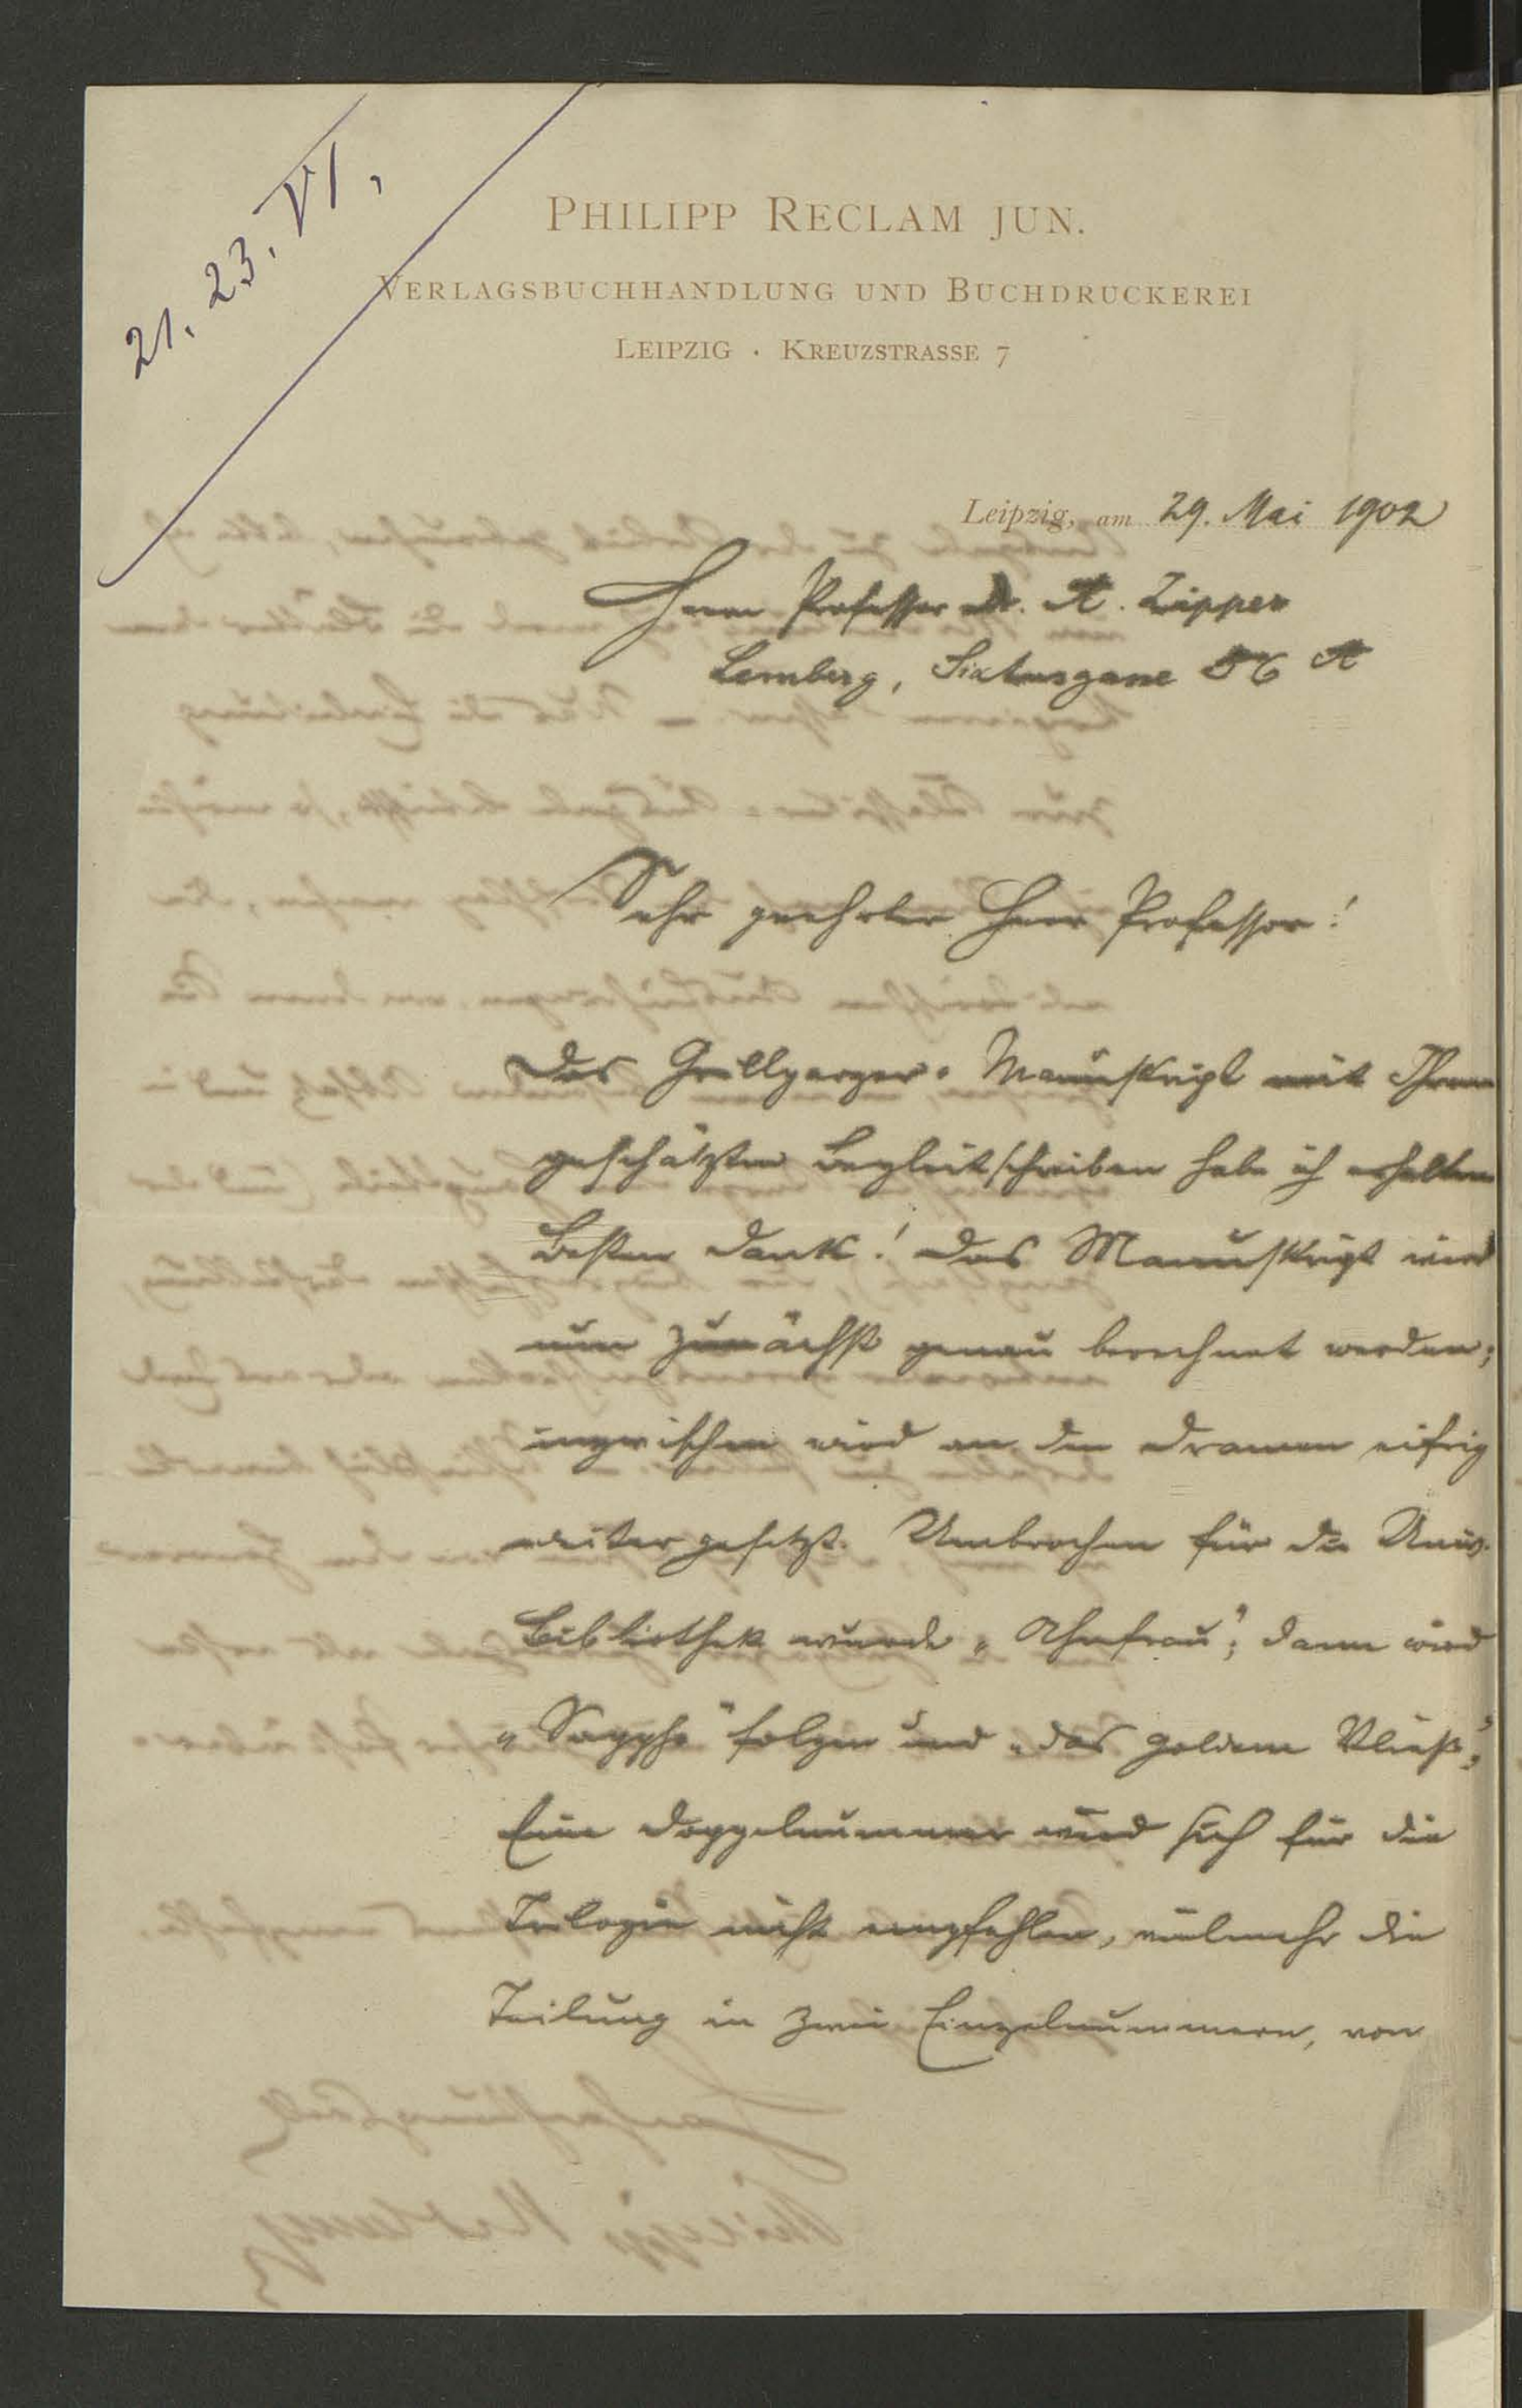 21. 23. VI,
PHILIPP RECLAM JUN.
VERLAGSBUCHHANDLUNG UND BUCHDRUCKEREI
LEIPZIG · KREUZSTRASSE 7
Leipzig, am 29. Mai 1902
Herrn Professor Dr. A. Zipper
Lemberg, Sixtusgasse 56 A
Sehr geehrter Herr Professor!
Das Grillparzer-Manuskript mit Ihrem
geschätzten Begleitschreiben habe ich erhalten
Besten Dank! Das Manuskript wird
nun zunächst genau berechnet werden;
inzwischen wird an den Dramen eifrig
weiter gesetzt. Umbrochen für die Univ.
Bibliothek wurde „Ahnfrau"; dann wird
„Sappho" folgen und „das goldene Vließ";
Eine Doppelnummer wird sich für die
Trilogie nicht empfehlen, vielmehr die
Teilung in zwei Einzelnummern, von